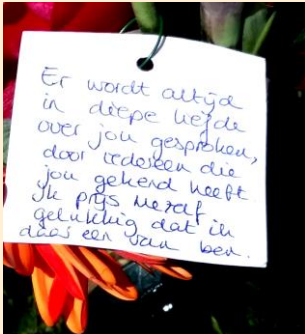 Er wordt altijd
in diepe liefde
over jou gesproken,
door iedereen die
jou gekend heeft.
Ik prijs mezelf
gelukkig dat ik
daar een van ben.